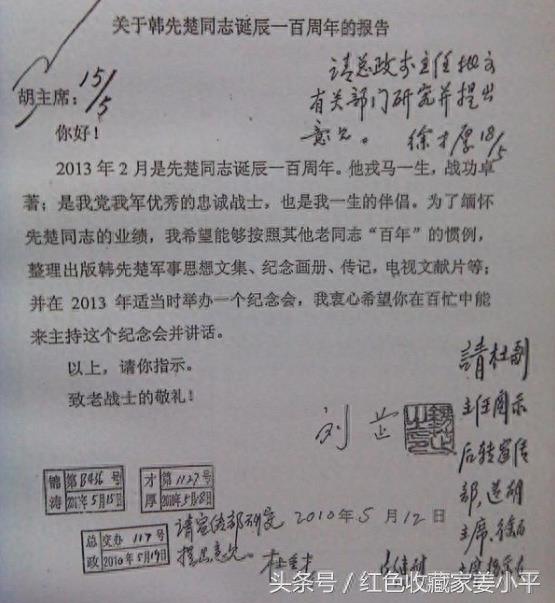 关于韩先楚同志诞辰一百周年的报告
15/5
胡主席：
你好！
请总政李主任批示
有关部门研究并提出
意见。 徐才厚 18/5
2013年2月是先楚同志诞辰一百周年。他戎马一生，战功卓
著；是我党我军优秀的忠诚战士，也是我一生的伴侣。为了缅怀
先楚同志的业绩，我希望能够按照其他老同志“百年”的惯例，
整理出版韩先楚军事思想文集、纪念画册、传记，电视文献片等；
并在 2013 年适当时举办一个纪念会，我衷心希望你在百忙中能
来主持这个纪念会并讲话。
以上，请你指示。
致老战士的敬礼！
刘芷
2010年5月12日
請杜副
主任阅示
后转宣传
部,送胡
主席,徐
锦涛 第B456号
5月15日
才厚 第1127号
5月18日
总政 交办 117号
2010年5月19日
请宣传部研究
提出意见。
头条号 / 红色收藏家姜小平